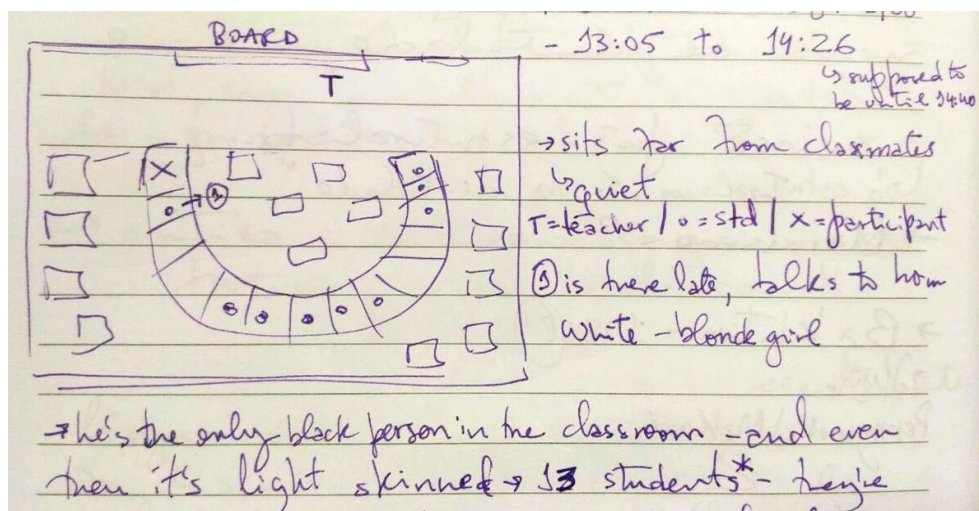 BOARD
T
X
①
- 13:05 to 14:26
↳ supposed to
be until 14:40
→ sits far from classmates
↳ quiet
T = teacher / o = std / X = participant
① is there late, talks to hom
white - blonde girl
→ he's the only black person in the classroom - and even
then it's light skinned → 13 students* - they're